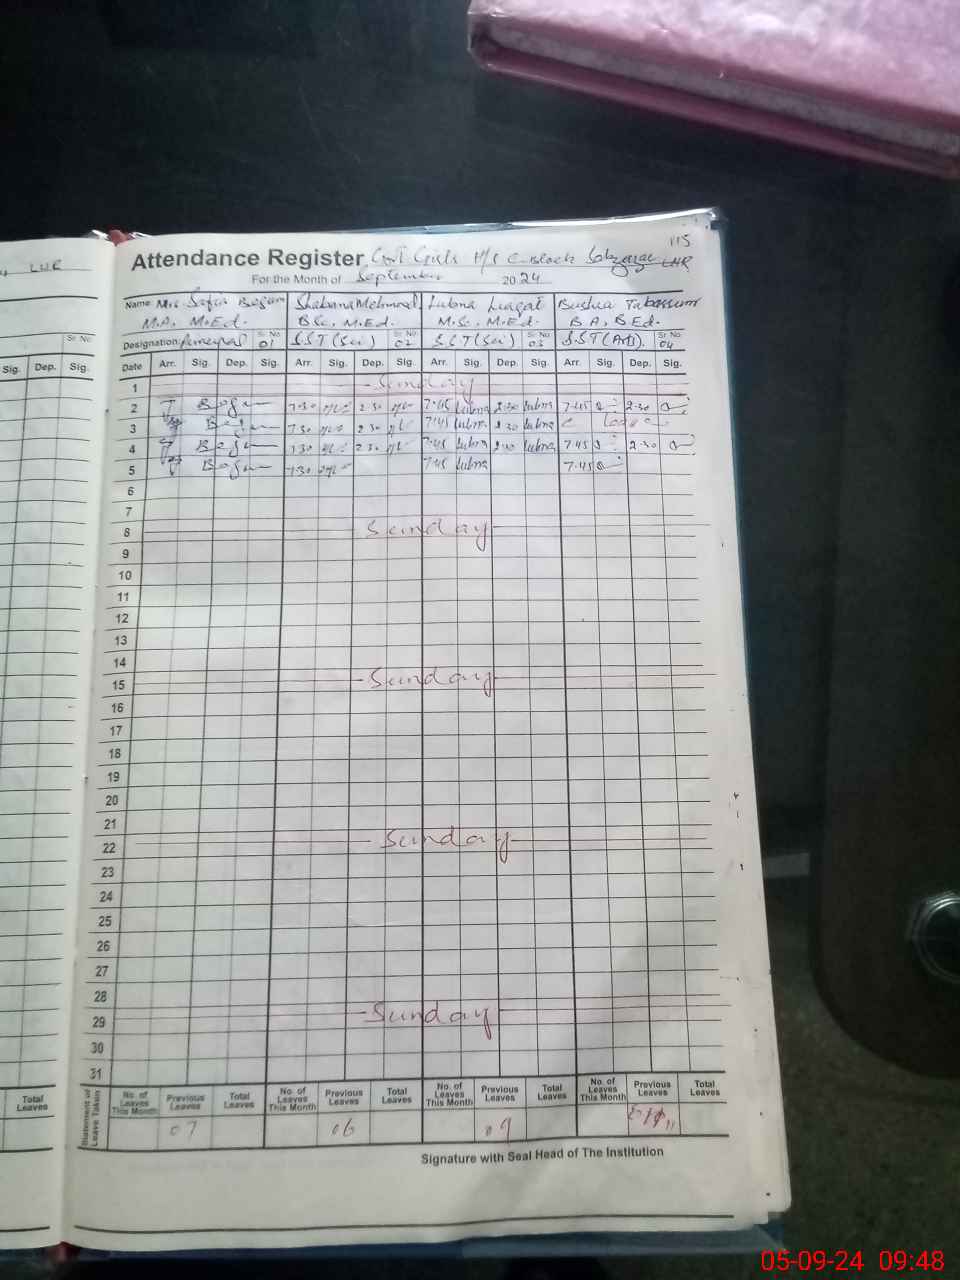 115
LHR
Attendance Register Govt Girls H/S C-Block Sabzazar LHR
For the Month of September 2024
Name Mrs Begum Shabana Mehmood Lubna Liaqat Bushra Tabassum
M.A, M.Ed. BSc, M.Ed. M.Sc, M.Ed. B A, B Ed.
Designation Principal Sr. No 01 S.S.T (Sci) Sr. No 02 S.S.T (Sci) Sr. No 03 S.S.T (Arts). Sr. No 04
Sr. No
Sig. Dep. Sig. Date Arr. Sig. Dep. Sig. Arr. Sig. Dep. Sig. Arr. Sig. Dep. Sig. Arr. Sig. Dep. Sig.
1 Sunday
2 Begum 7.30 2.30 7.45 Lubna 2.30 Lubna 7.45 2.30
3 Begum 7.30 2.30 7.45 Lubna 2.30 Lubna
4 Begum 7.30 2.30 7.45 Lubna 2.30 Lubna 7.45 2.30
5 Begum 7.30 7.45 Lubna 7.45
6
7
8 Sunday
9
10
11
12
13
14
15 Sunday
16
17
18
19
20
21
22 Sunday
23
24
25
26
27
28
29 Sunday
30
31
Total Leaves Statement of Leave Taken No. of Leaves This Month Previous Leaves Total Leaves No. of Leaves This Month Previous Leaves Total Leaves No. of Leaves This Month Previous Leaves Total Leaves No. of Leaves This Month Previous Leaves Total Leaves
07 06 09
Signature with Seal Head of The Institution
05-09-24 09:48